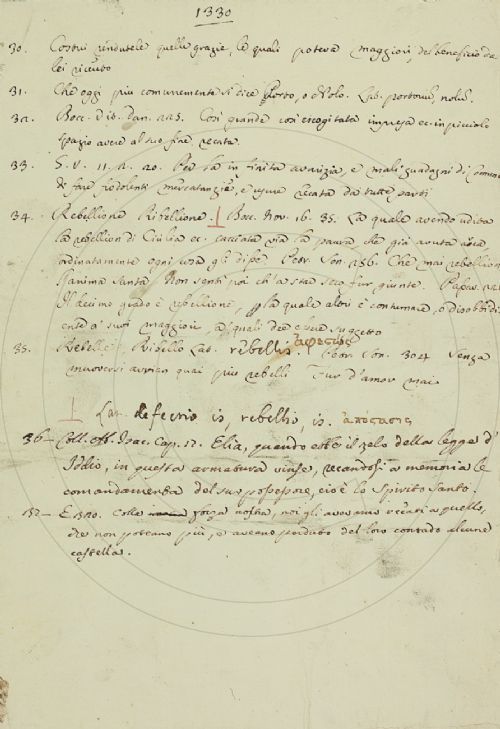 1330
30. Costui rendutele quelle grazie, le quali poteva maggiori, del beneficio da
lei ricevuto
31. Che oggi più comunemente si dice Porto, o Volo. Lat.
32. Bocc. Vit. Dan. 225. Così grande così escogitata impresa ec. in picciolo
spazio avere al suo fine recata.
33. G. V. 11. 2. 20. Per la infinita avarizia, e mali guadagni di comune
& fare frodolenti mercatanzie, e usure recata da tutte parti
34. Rebellione Ribellione. Bocc. Nov. 16. 35. La quale avendo udita
la rebellion di Cicilia ec. cacciata via la paura, che già avuta avea
ordinatamente ogni cosa gli dipè Petr. Son. 256. Che mai rebellion
l'anima santa Non sentì poi ch'a star seco fur giunte. Passav.
Il decimo grado è rebellione, la quale altri è contumace, o disobbidi=
ente a' suoi maggiori a' quali dee essere suggetto
35. Rebelle Ribello Lat. rebellis. Petr. Son. Senza
muoversi avrien quai più rebelli Fur d'amor mai
Lat. defectio is, rebellio, is. ἀπόστασις
36- Coll. Ab. Isac. Cap. 17. Elia, quando ebbe il zelo della legge d'
Iddio, in questa armadura vinse, recandosi a memoria le
comandamenta del suo possessore, cioè lo Spirito Santo.
Colle forza nostra, noi gli avavamo recati a quello,
che non poteano più, e aveano perduto del loro contado alcune
castella.